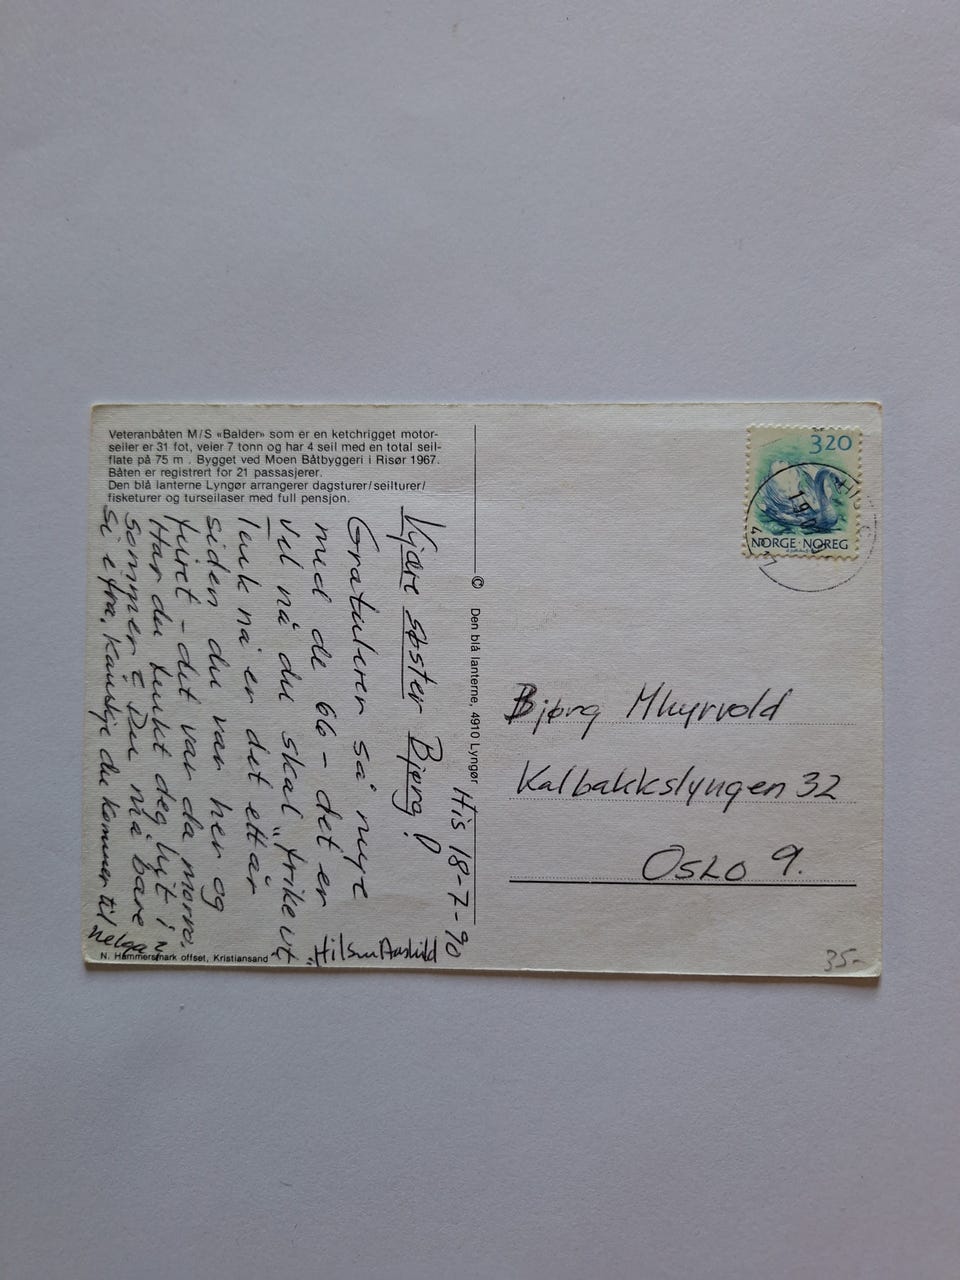 Veteranbåten M/S «Balder» som er en ketchrigget motor-
seiler er 31 fot, veier 7 tonn og har 4 seil med en total seil-
flate på 75 m . Bygget ved Moen Båtbyggeri i Risør 1967.
Båten er registrert for 21 passasjerer.
Den blå lanterne Lyngør arrangerer dagsturer/seilturer/
fisketurer og turseilaser med full pensjon.
His 18-7-90
Kjære søster Bjørg!
Gratulerer så mye
med de 66 - det er
vel nå du skal "frike ut"
Tenk nå er det ett år
siden du var her og
furet - det var da morro.
Har du tenkt deg hit i
sommer? Du må bare
si i fra, kanskje du kommer til
helga?
"Hilsen Aashild
N. Hammersmark offset, Kristiansand
© Den blå lanterne, 4910 Lyngør
320
NORGE·NOREG
HIS
Bjørg Mhyrvold
Kalbakkslyngen 32
OSLO 9.
35-